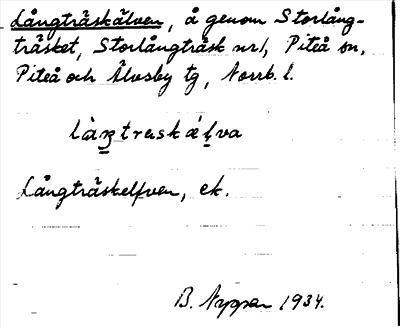 Långträskälven, å genom Storlång-
träsket, Storlångträsk nr1, Piteå sn,
Piteå och Älvsby tg, Norrb. l.
Långträskelfven, ek.
B. 1934.